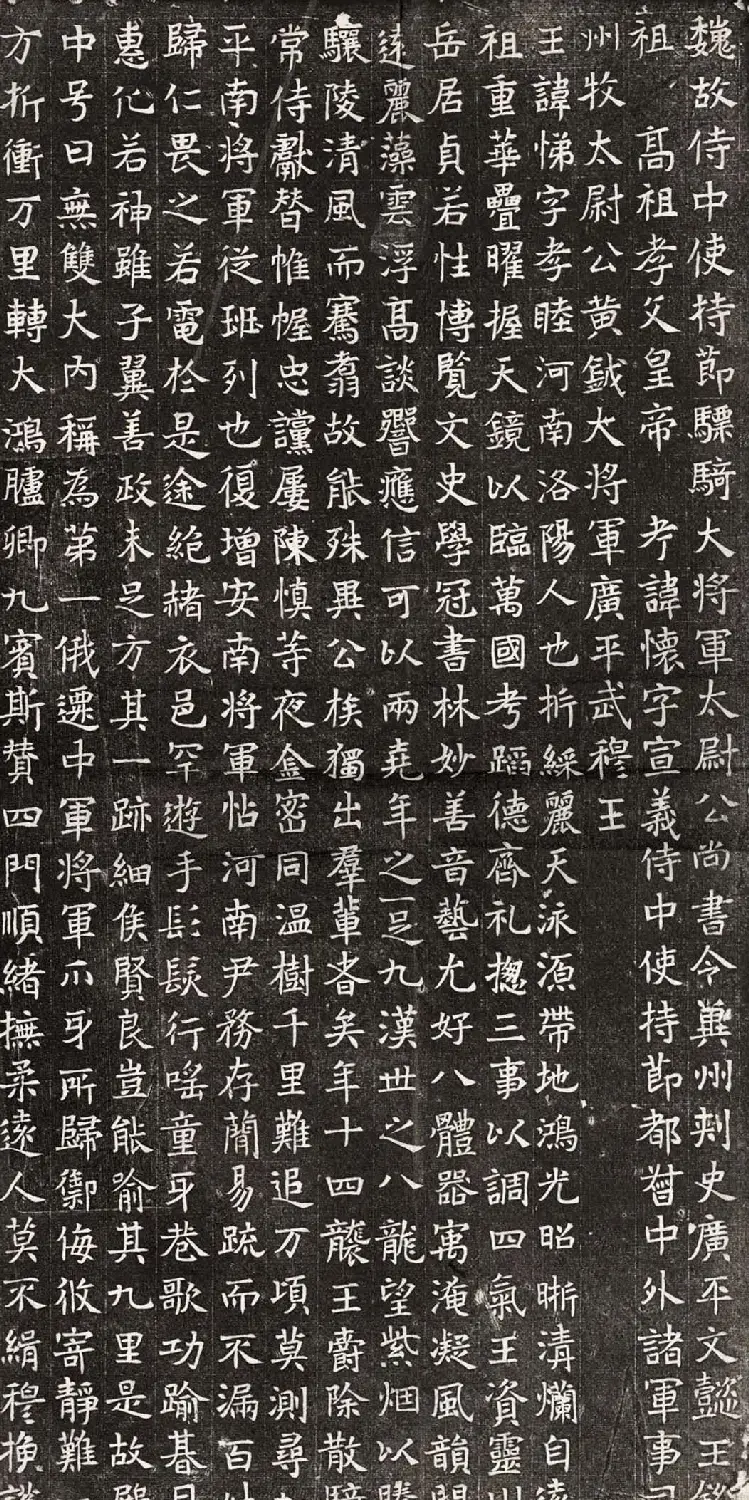 魏故侍中使持節驃騎大將軍太尉公尚書令冀州刾史廣平文懿王銘
祖 高祖孝文皇帝 考諱懷字宣義侍中使持節都督中外諸軍事司
州牧太尉公黃鉞大將軍廣平武穆王
王諱悌字孝睦河南洛陽人也折綵麗天泳源帶地鴻光昭晣清爛自遠
祖重華疊曜握天鏡以臨萬國考蹈德齊礼揔三事以調四氣王資靈川
岳居貞若性博覽文史學冠書林妙善音藝尤好八體器寓淹凝風韻閑
遠麗藻雲浮高談響應信可以兩堯年之一足九漢世之八龍望紫烟以騰
驤陵清風而騫翥故能殊異公矦獨出羣輩者矣年十四襲王爵除散騎
常侍獻替惟幄忠讜屢陳慎等夜金密同温樹千里難追万頃莫測尋
平南将軍從班列也復增安南将軍帖河南尹務存簡易踈而不漏百姓
歸仁畏之若電於是途絕赭衣邑罕遊手髟髮行謡童牙巷歌功踰朞月
惠化若神雖子翼善政未足方其一跡細侯賢良豈能喻其九里是故
中号曰無雙大内稱為第一俄遷中軍将軍爪牙所歸禦侮攸寄靜難
方折衝万里轉大鴻臚卿九賓斯贊四門順緒撫柔遠人莫不緝穆